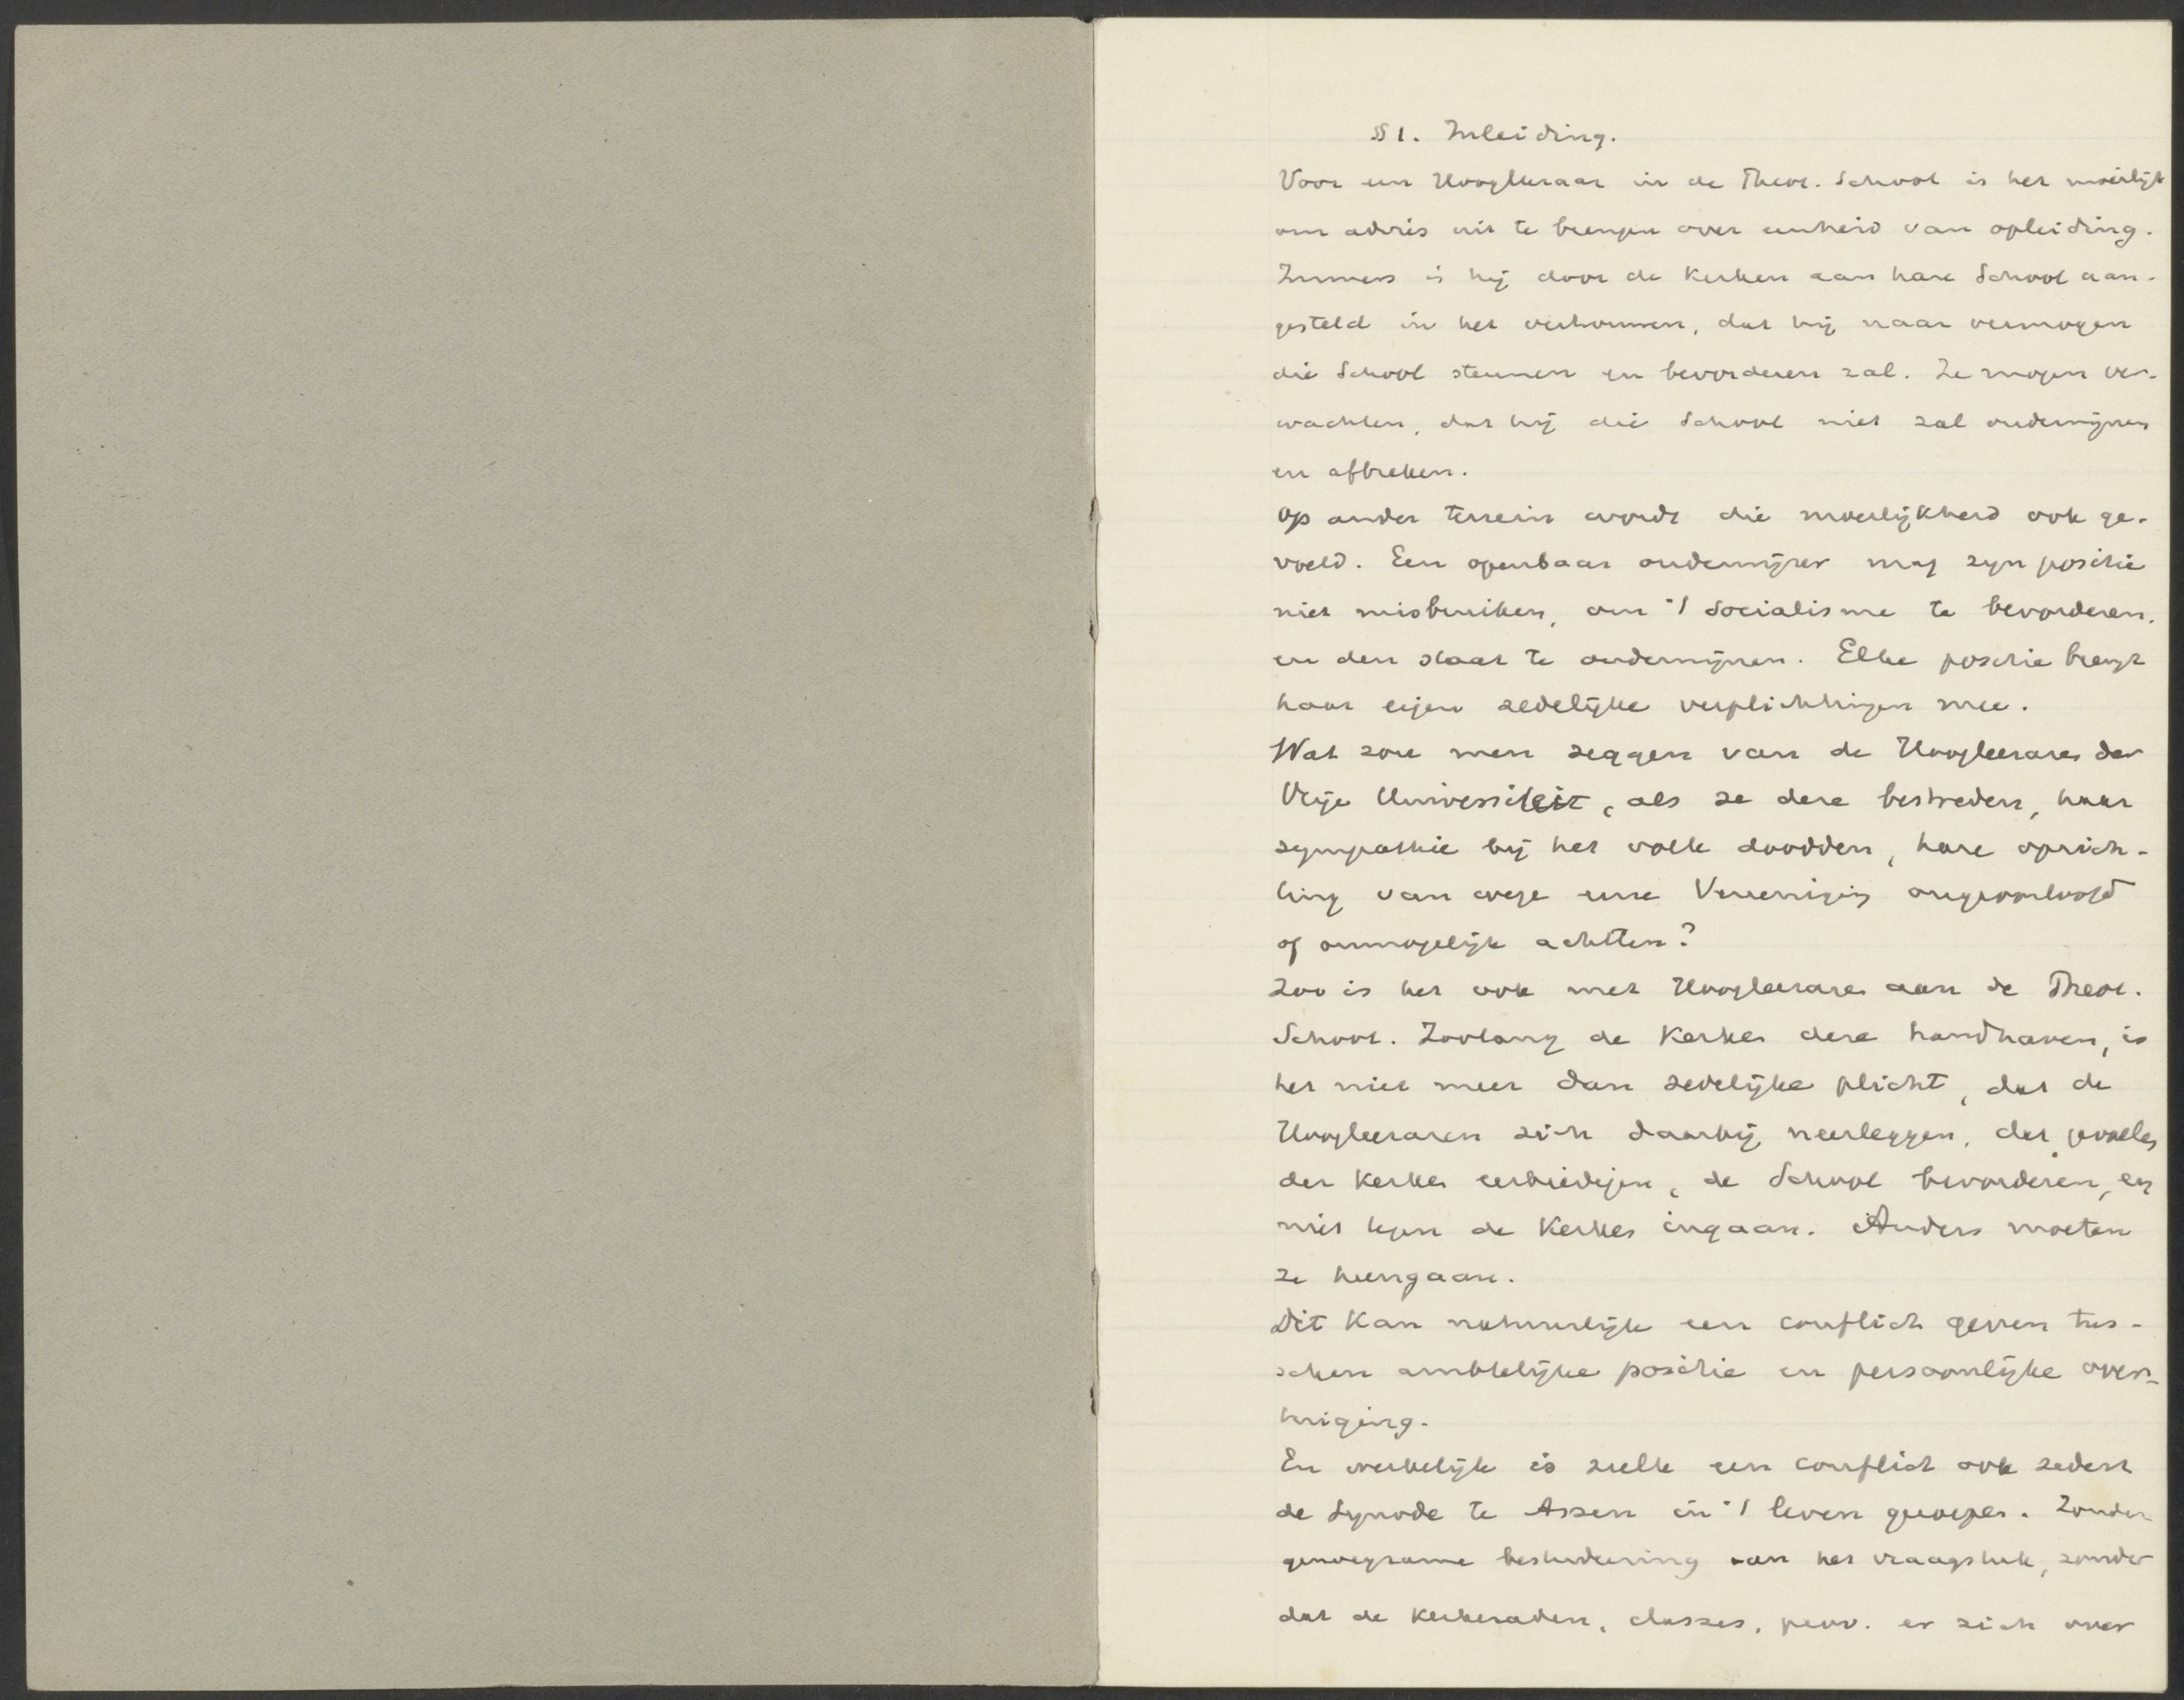 § 1. Inleiding.
Voor een Hoogleeraar in de Theol. School is het moeilijk
om advies uit te brengen over eenheid van opleiding.
Immers is hij door de Kerken aan hare School aan-
gesteld in het vertrouwen, dat hij naar vermogen
die School steunen en bevorderen zal. Ze mogen ver-
wachten, dat hij die School niet zal ondermijnen
en afbreken.
Op ander terrein wordt die moeilijkheid ook ge-
voeld. Een openbaar onderwijzer mag zijn positie
niet misbruiken, om 't socialisme te bevorderen,
en den staat te ondermijnen. Elke positie brengt
haar eigen zedelijke verplichtingen mee.
Wat zou men zeggen van de Hoogleeraren der
Vrije Universiteit, als ze deze bestreden, haar
sympathie bij het volk doodden, hare oprich-
ting van wege eene Vereeniging ongeoorloofd
of onmogelijk achtten?
Zoo is het ook met Hoogleeraren aan de Theol.
School. Zoolang de Kerken deze handhaven, is
het niet meer dan zedelijke plicht, dat de
Hoogleeraren zich daarbij neerleggen, dat gevoelen
der Kerken eerbiedigen, de School bevorderen, en
niet tegen de Kerken ingaan. Anders moeten
ze heengaan.
Dit kan natuurlijk een conflict geven tus-
schen ambtelijke positie en persoonlijke over-
tuiging.
En werkelijk is zulk een conflict ook sedert
de Synode te Assen in 't leven geroepen. Zonder
genoegzame bestudeering van het vraagstuk, zonder
dat de Kerkeraden, classes, prov. er zich over